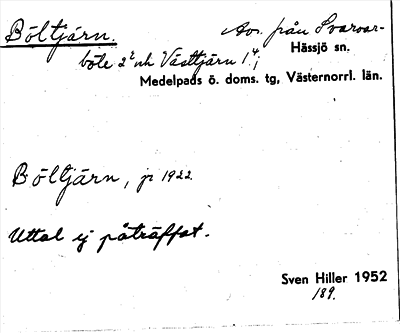 Böltjärn. Avs. från Svarvar-
böle 2² och Västtjärn 1⁴;
Hässjö sn.
Medelpads ö. doms. tg, Västernorrl. län.
Böltjärn, jr 1922.
Uttal ej påträffat.
Sven Hiller 1952
189.